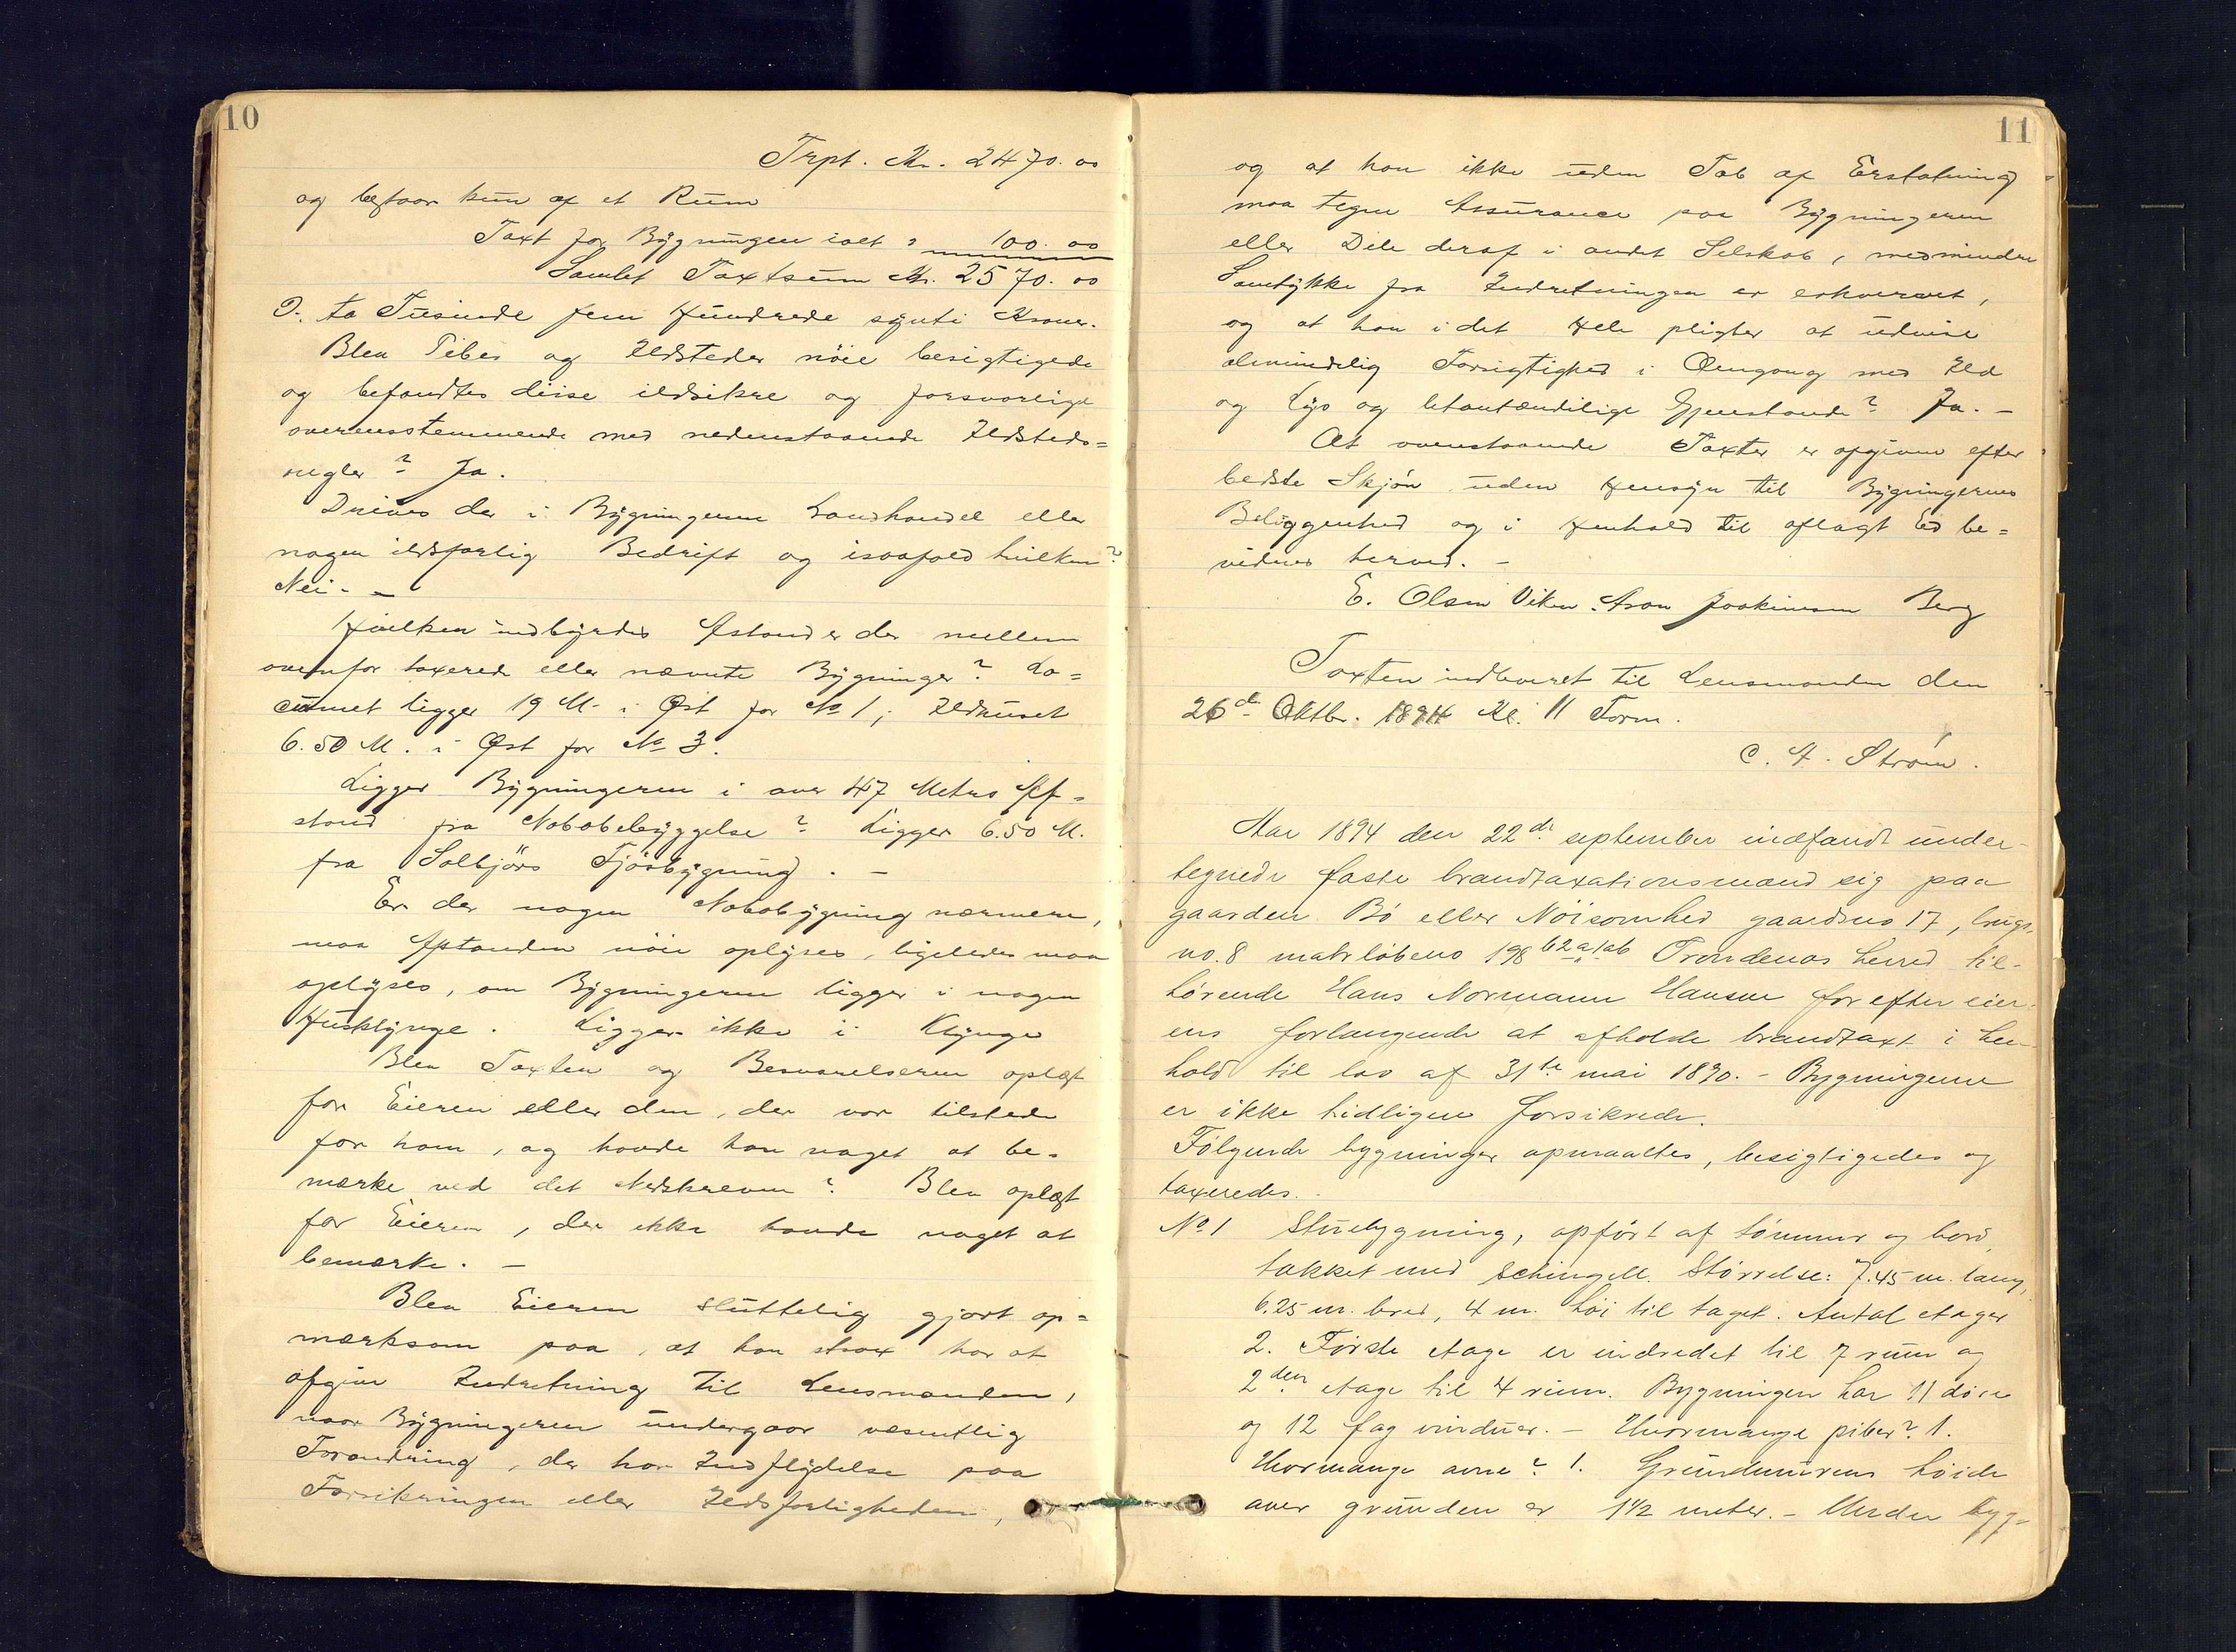 10
Trpt. Kr. 2470.00
og bestaar kun af et Rum
Taxt for Bygningen ialt " 100.00
Samlet Taxtsum Kr. 2570.00
D. to Tusinde fem Hundrede sytti Kroner.
Blev Piber og Ildsteder nöie besigtigede
og befandtes disse ildsikre og forsvarlige
overensstemmende med nedenstaaende Ildsteds=
regler? Ja.
Drives der i Bygningerne Landhandel eller
nogen ildsfarlig Bedrift og isaafald hvilken?
Nei. —
Hvilken indbyrdes Afstand er der mellem
ovenfor taxerede eller nævnte Bygninger? Lo=
cumet ligger 19 M. i Øst for No 1; Ildhuset
6.50 M. i Øst for No 3.
Ligger Bygningerne i over 47 Metres Af=
stand fra Nabobebyggelse? Ligger 6.50 M.
fra Solbjörs Fjösbygning. —
Er der nogen Nabobygning nærmere,
maa Afstanden nöie oplyses, ligeledes maa
oplyses, om Bygningerne ligger i nogen
Husklynge. Ligger ikke i Klynge
Blev Taxten og Besvarelserne oplæst
for Eieren eller den, der var tilstede
for ham, og havde han noget at be=
mærke ved det Nedskrevne? Blev oplæst
for Eieren, der ikke havde noget at
bemærke. —
Blev Eieren sluttelig gjort op=
mærksom paa, at han strax har at
afgive Indretning til Lensmanden,
naar Bygningerne undergaar væsentlig
Forandring, der har Indflydelse paa
Forsikringen eller Ildsfarligheden,
11
og at han ikke uden Tab af Erstatning
maa tegne Assurance paa Bygningerne
eller Dele deraf i andet Selskab, medmindre
Samtykke fra Indretningen er erhvervet,
og at han i det Hele pligter at udvise
almindelig Forsigtighed i Omgang med Ild
og Lys og letantændelige Gjenstande? Ja. —
At ovenstaaende Taxter er afgivne efter
bedste Skjøn uden Hensyn til Bygningernes
Beliggenhed og i Henhold til aflagt Ed be=
vidnes herved. —
E. Olsen Viken. Aron Joakimsen Berg
Taxten indleveret til Lensmanden den
26de Oktbr. 1894 Kl. 11 Form.
C. A. Strøm.
Aar 1894 den 22de september indfandt under-
tegnede faste brandtaxationsmænd sig paa
gaarden Bö eller Nöisomhed gaardsno 17, brugs-
no. 8 matr löbeno 198 b2a1ab Trondenæs herred til-
hørende Hans Normann Hansen for efter eier-
ens forlangende at afholde brandtaxt i hen-
hold til lov af 31te mai 1890. — Bygningerne
er ikke tidligere forsikrede.
Følgende bygninger opmaaltes, besigtigedes og
taxeredes.
No 1 Stuebygning, opført af tömmer og bord,
takket med schingell. Størrelse: 7.45 m. lang,
6.25 m. bred, 4 m. høi til taget. Antal etager
2. Første etage er indredet til 7 rum og
2den etage til 4 rum. Bygningen har 11 döre
og 12 fag vinduer. — Hvormange piber? 1.
Hvormange ovne? 1. Grundmurens høide
over grunden er 1½ meter. — Under byg=